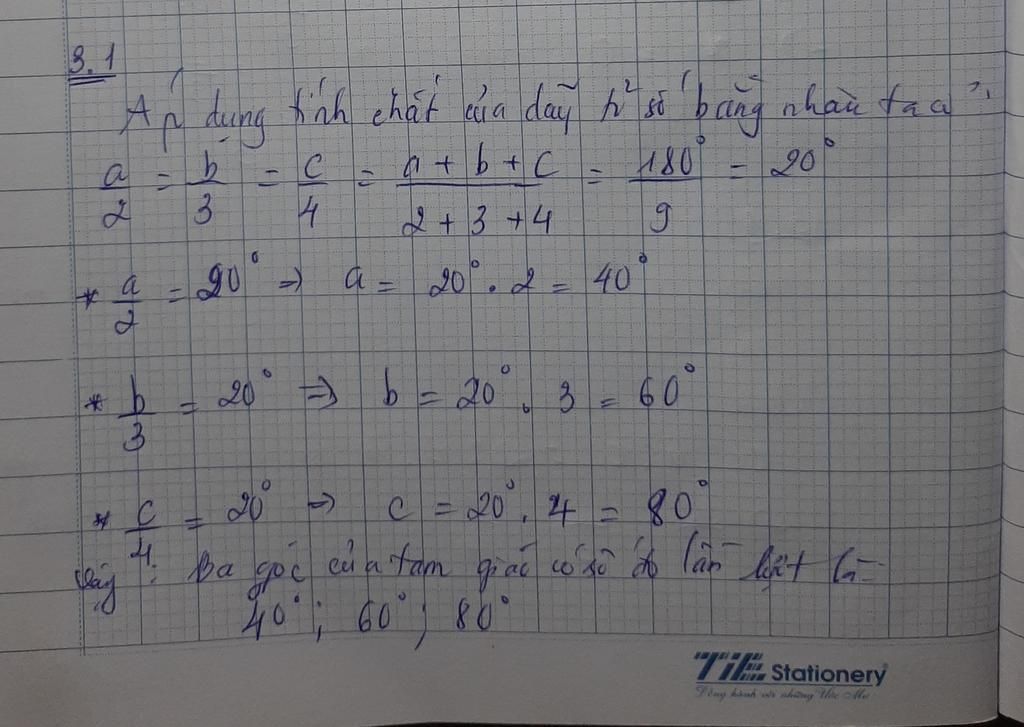 3.1
Áp dụng tính chất của dãy tỉ số bằng nhau ta có
a/2 = b/3 = c/4 = a + b + c/2 + 3 + 4 = 180°/9 = 20°
* a/2 = 20° => a = 20° . 2 = 40°
* b/3 = 20° => b = 20° . 3 = 60°
* c/4 = 20° => c = 20° . 4 = 80°
Vậy : Ba góc của tam giác có số đo lần lượt là
40° ; 60° ; 80°
TiE Stationery
Đồng hành với những Ước Mơ